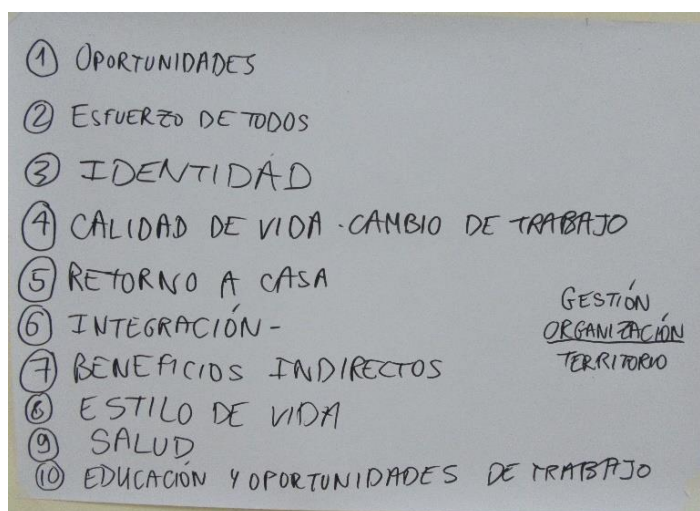 ① OPORTUNIDADES
② ESFUERZO DE TODOS
③ IDENTIDAD
④ CALIDAD DE VIDA - CAMBIO DE TRABAJO
⑤ RETORNO A CASA
⑥ INTEGRACIÓN -
⑦ BENEFICIOS INDIRECTOS
⑧ ESTILO DE VIDA
⑨ SALUD
⑩ EDUCACIÓN Y OPORTUNIDADES DE TRABAJO
GESTIÓN
ORGANIZACIÓN
TERRITORIO